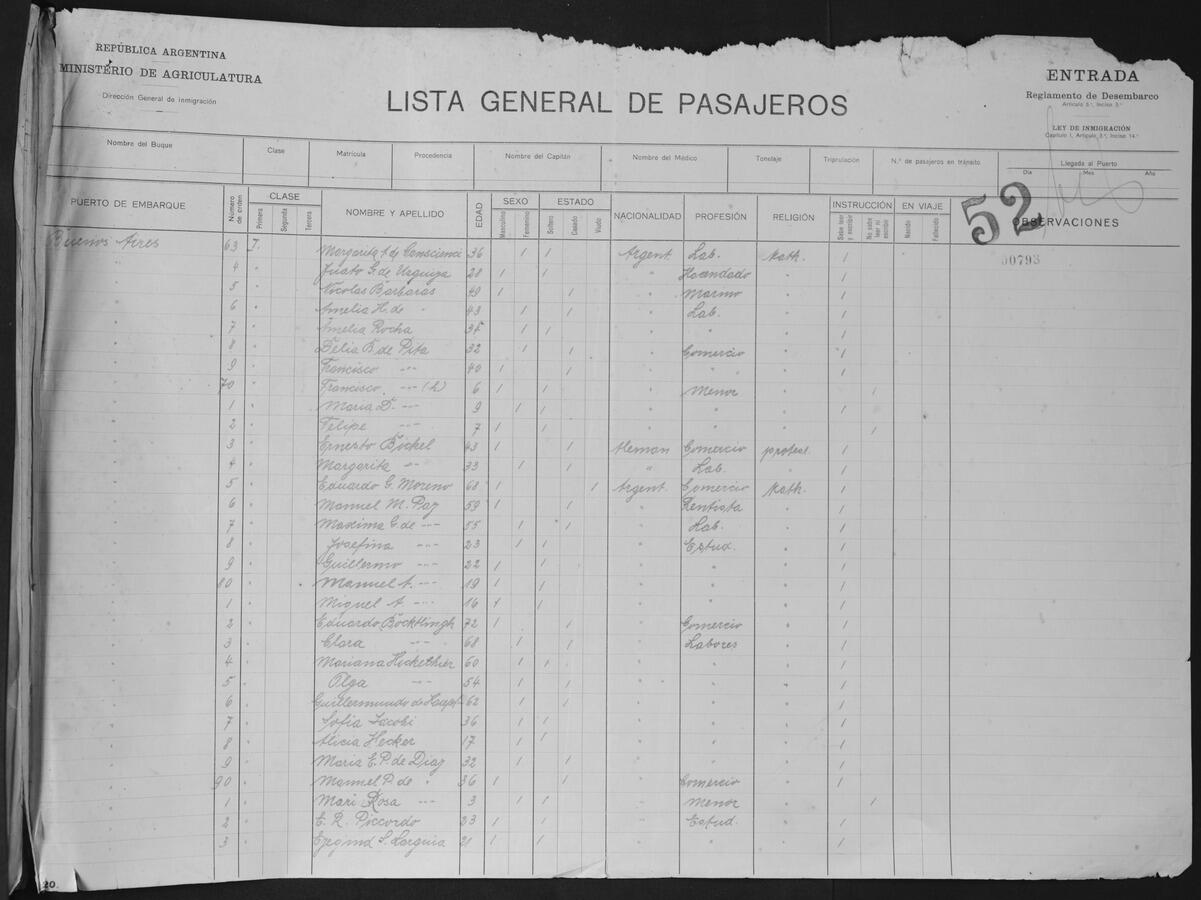 REPÚBLICA ARGENTINA
MINISTERIO DE AGRICULTURA
Dirección General de Inmigración
LISTA GENERAL DE PASAJEROS
ENTRADA
Reglamento de Desembarco
Artículo 5°, Inciso 3°
LEY DE INMIGRACIÓN
Capítulo I, Artículo 3°, Inciso 14°
Nombre del Buque Clase Matrícula Procedencia Nombre del Capitán Nombre del Médico Tonelaje Tripulación N.° de pasajeros en tránsito Llegada al Puerto
Día Mes Año
PUERTO DE EMBARQUE Número de orden CLASE Primera Segunda Tercera NOMBRE Y APELLIDO EDAD SEXO Masculino Femenino ESTADO Soltero Casado Viudo NACIONALIDAD PROFESIÓN RELIGIÓN INSTRUCCIÓN Sabe leer y escribir No sabe leer ni escribir EN VIAJE Nacido Fallecido OBSERVACIONES
52
00793
Buenos Aires 63 I. Margarita A. de 36 / / Argent Lab. Kath. /
" 4 " G. de 28 / / " Hacendado " /
" 5 " Nicolas Barbaras 49 / / " Marino " /
" 6 " Amelia H. de " 43 / / " Lab. " /
" 7 " Amelia Rocha 35 / / " " " /
" 8 " Delia B. de Pita 32 / / " Comercio " /
" 9 " Francisco -"- 40 / / " " " /
" 70 " Francisco -"- (h) 6 / / " Menor " /
" 1 " Maria D. -"- 9 / / " " " /
" 2 " Felipe -"- 7 / / " " " /
" 3 " Ernesto Böckel 43 / / Aleman Comercio protest. /
" 4 " Margarita -"- 33 / / " Lab. " /
" 5 " Eduardo G. Moreno 68 / / Argent. Comercio Kath. /
" 6 " Manuel M. Paz 59 / / " Rentista " /
" 7 " Maxima G. de -"- 55 / / " Lab. " /
" 8 " Josefina -"- 23 / / " Estud. " /
" 9 " Guillermo -"- 22 / / " " " /
" 80 " Manuel A. -"- 19 / / " " " /
" 1 " Miguel A. -"- 16 / / " " " /
" 2 " Eduardo Böcktlingk 72 / / " Comercio " /
" 3 " Clara -"- 68 / / " Labores " /
" 4 " Mariana Hickethier 60 / / " " " /
" 5 " Olga -"- 54 / / " " " /
" 6 " Guillermundo de 62 / / " " " /
" 7 " Sofia Jacobi 36 / / " " " /
" 8 " Alicia Hecker 17 / / " " " /
" 9 " Maria E. P. de Diaz 32 / / " " " /
" 90 " Manuel P. de " 36 / / " Comercio " /
" 1 " Mari Rosa -"- 3 / / " Menor " /
" 2 " E. R. Piccardo 23 / / " Estud. " /
" 3 " S. 21 / / " " " /
20.